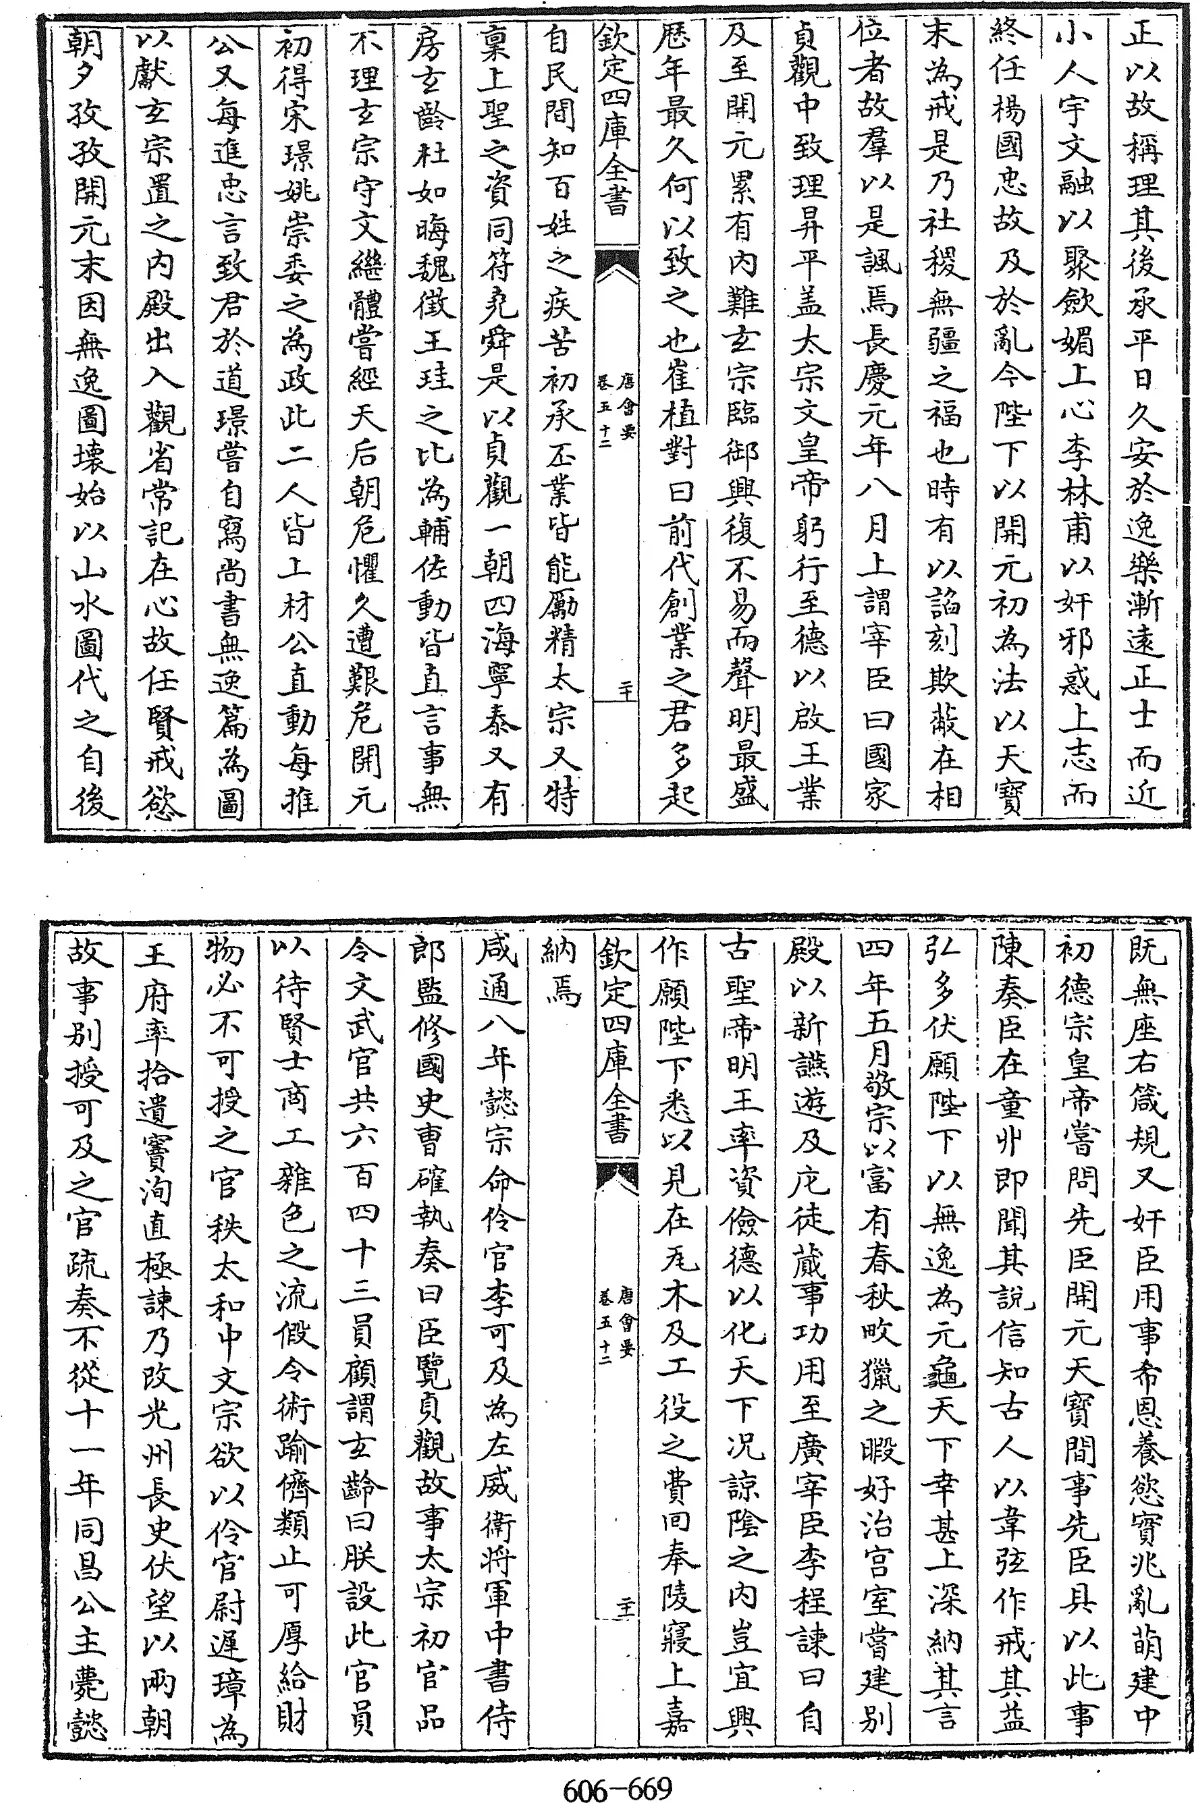 正以故稱理其後承平日久安於逸樂漸逺正士而近
小人宇文融以聚斂媚上心李林甫以奸邪惑上志而
終任楊國忠故及於亂今陛下以開元初為法以天寶
末為戒是乃社稷無疆之福也時有以諂刻欺蔽在相
位者故羣以是諷焉長慶元年八月上謂宰臣曰國家
貞觀中致理昇平盖太宗文皇帝躬行至德以啟王業
及至開元累有內難玄宗臨御興復不易而聲明最盛
歴年最久何以致之也崔植對曰前代創業之君多起
欽定四庫全書
唐會要
卷五十二
二十
自民間知百姓之疾苦初承丕業皆能勵精太宗又特
稟上聖之資同符堯舜是以貞觀一朝四海寧泰又有
房玄齡杜如晦魏徵王珪之比為輔佐動皆直言事無
不理玄宗守文繼體嘗經天后朝危懼久遭艱危開元
初得宋璟姚崇委之為政此二人皆上材公直動每推
公又每進忠言致君於道璟嘗自寫尚書無逸篇為圖
以獻玄宗置之內殿出入觀省常記在心故任賢戒慾
朝夕孜孜開元末因無逸圖壊始以山水圖代之自後
既無座右箴規又奸臣用事希恩養慾寶兆亂萌建中
初德宗皇帝嘗問先臣開元天寶間事先臣具以此事
陳奏臣在童丱即聞其說信知古人以韋弦作戒其益
弘多伏願陛下以無逸為元龜天下幸甚上深納其言
四年五月敬宗以富有春秋畋獵之暇好治宮室嘗建別
殿以新讌遊及庀徒蕆事功用至廣宰臣李程諫曰自
古聖帝明王率資儉德以化天下況諒陰之內豈宜興
作願陛下悉以見在瓦木及工役之費囘奉陵寢上嘉
欽定四庫全書
唐會要
卷五十二
二十一
納焉
咸通八年懿宗命伶官李可及為左威衛將軍中書侍
郎監修國史曹確執奏曰臣覽貞觀故事太宗初官品
令文武官共六百四十三員顧謂玄齡曰朕設此官員
以待賢士商工雜色之流假令術踰儕類止可厚給財
物必不可授之官秩太和中文宗欲以伶官尉遲璋為
王府率拾遺竇洵直極諫乃改光州長史伏望以兩朝
故事別授可及之官疏奏不從十一年同昌公主薨懿
606-669